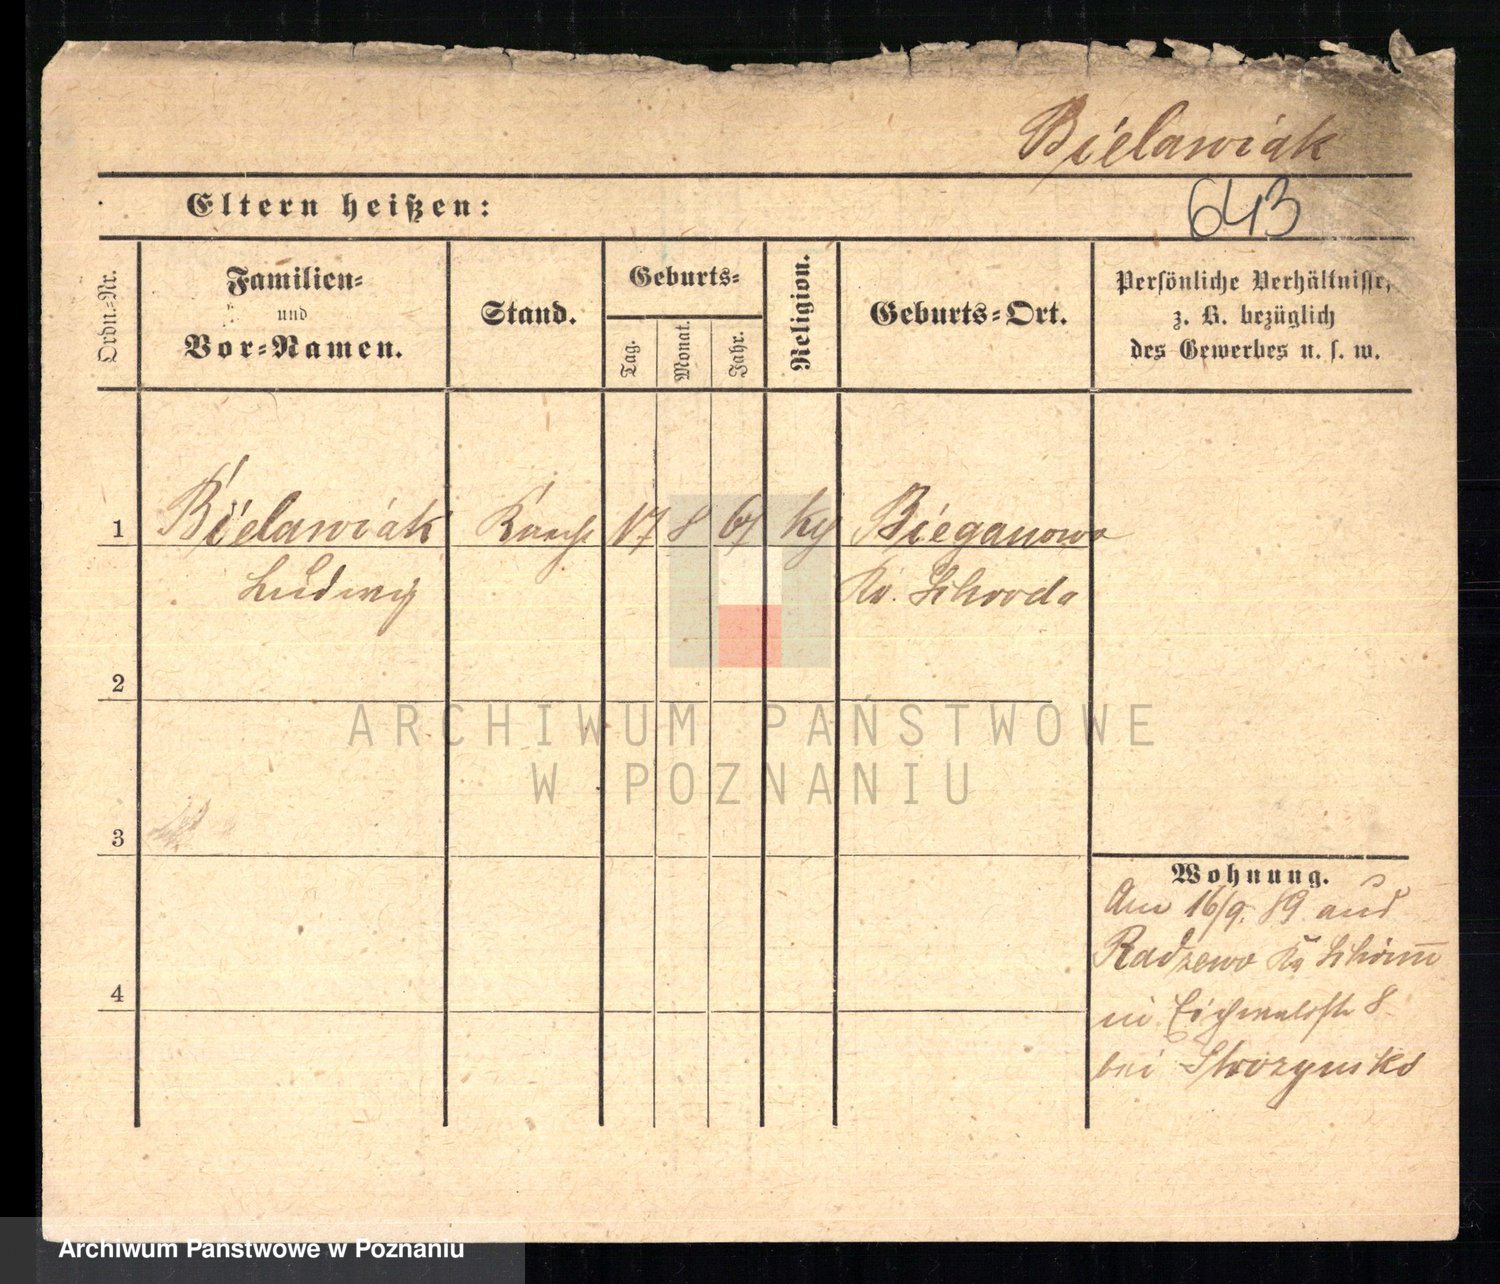 Bielawiak
643
Eltern heißen:
Ordn.-Nr.
Familien-
und
Vor-Namen.
Stand.
Geburts-
Tag.
Monat.
Jahr.
Religion.
Geburts-Ort.
Persönliche Verhältnisse,
z. B. bezüglich
des Gewerbes u. s. w.
1
Bielawiak
17
8
Bieganowo
Ludwig
Kr. Schroda
2
ARCHIWUM PAŃSTWOWE
W POZNANIU
3
Wohnung.
Am 16/9. 89 aus
Radzewo Kr Schrimm
in Eichwaldstr 8
bei
4
Archiwum Państwowe w Poznaniu